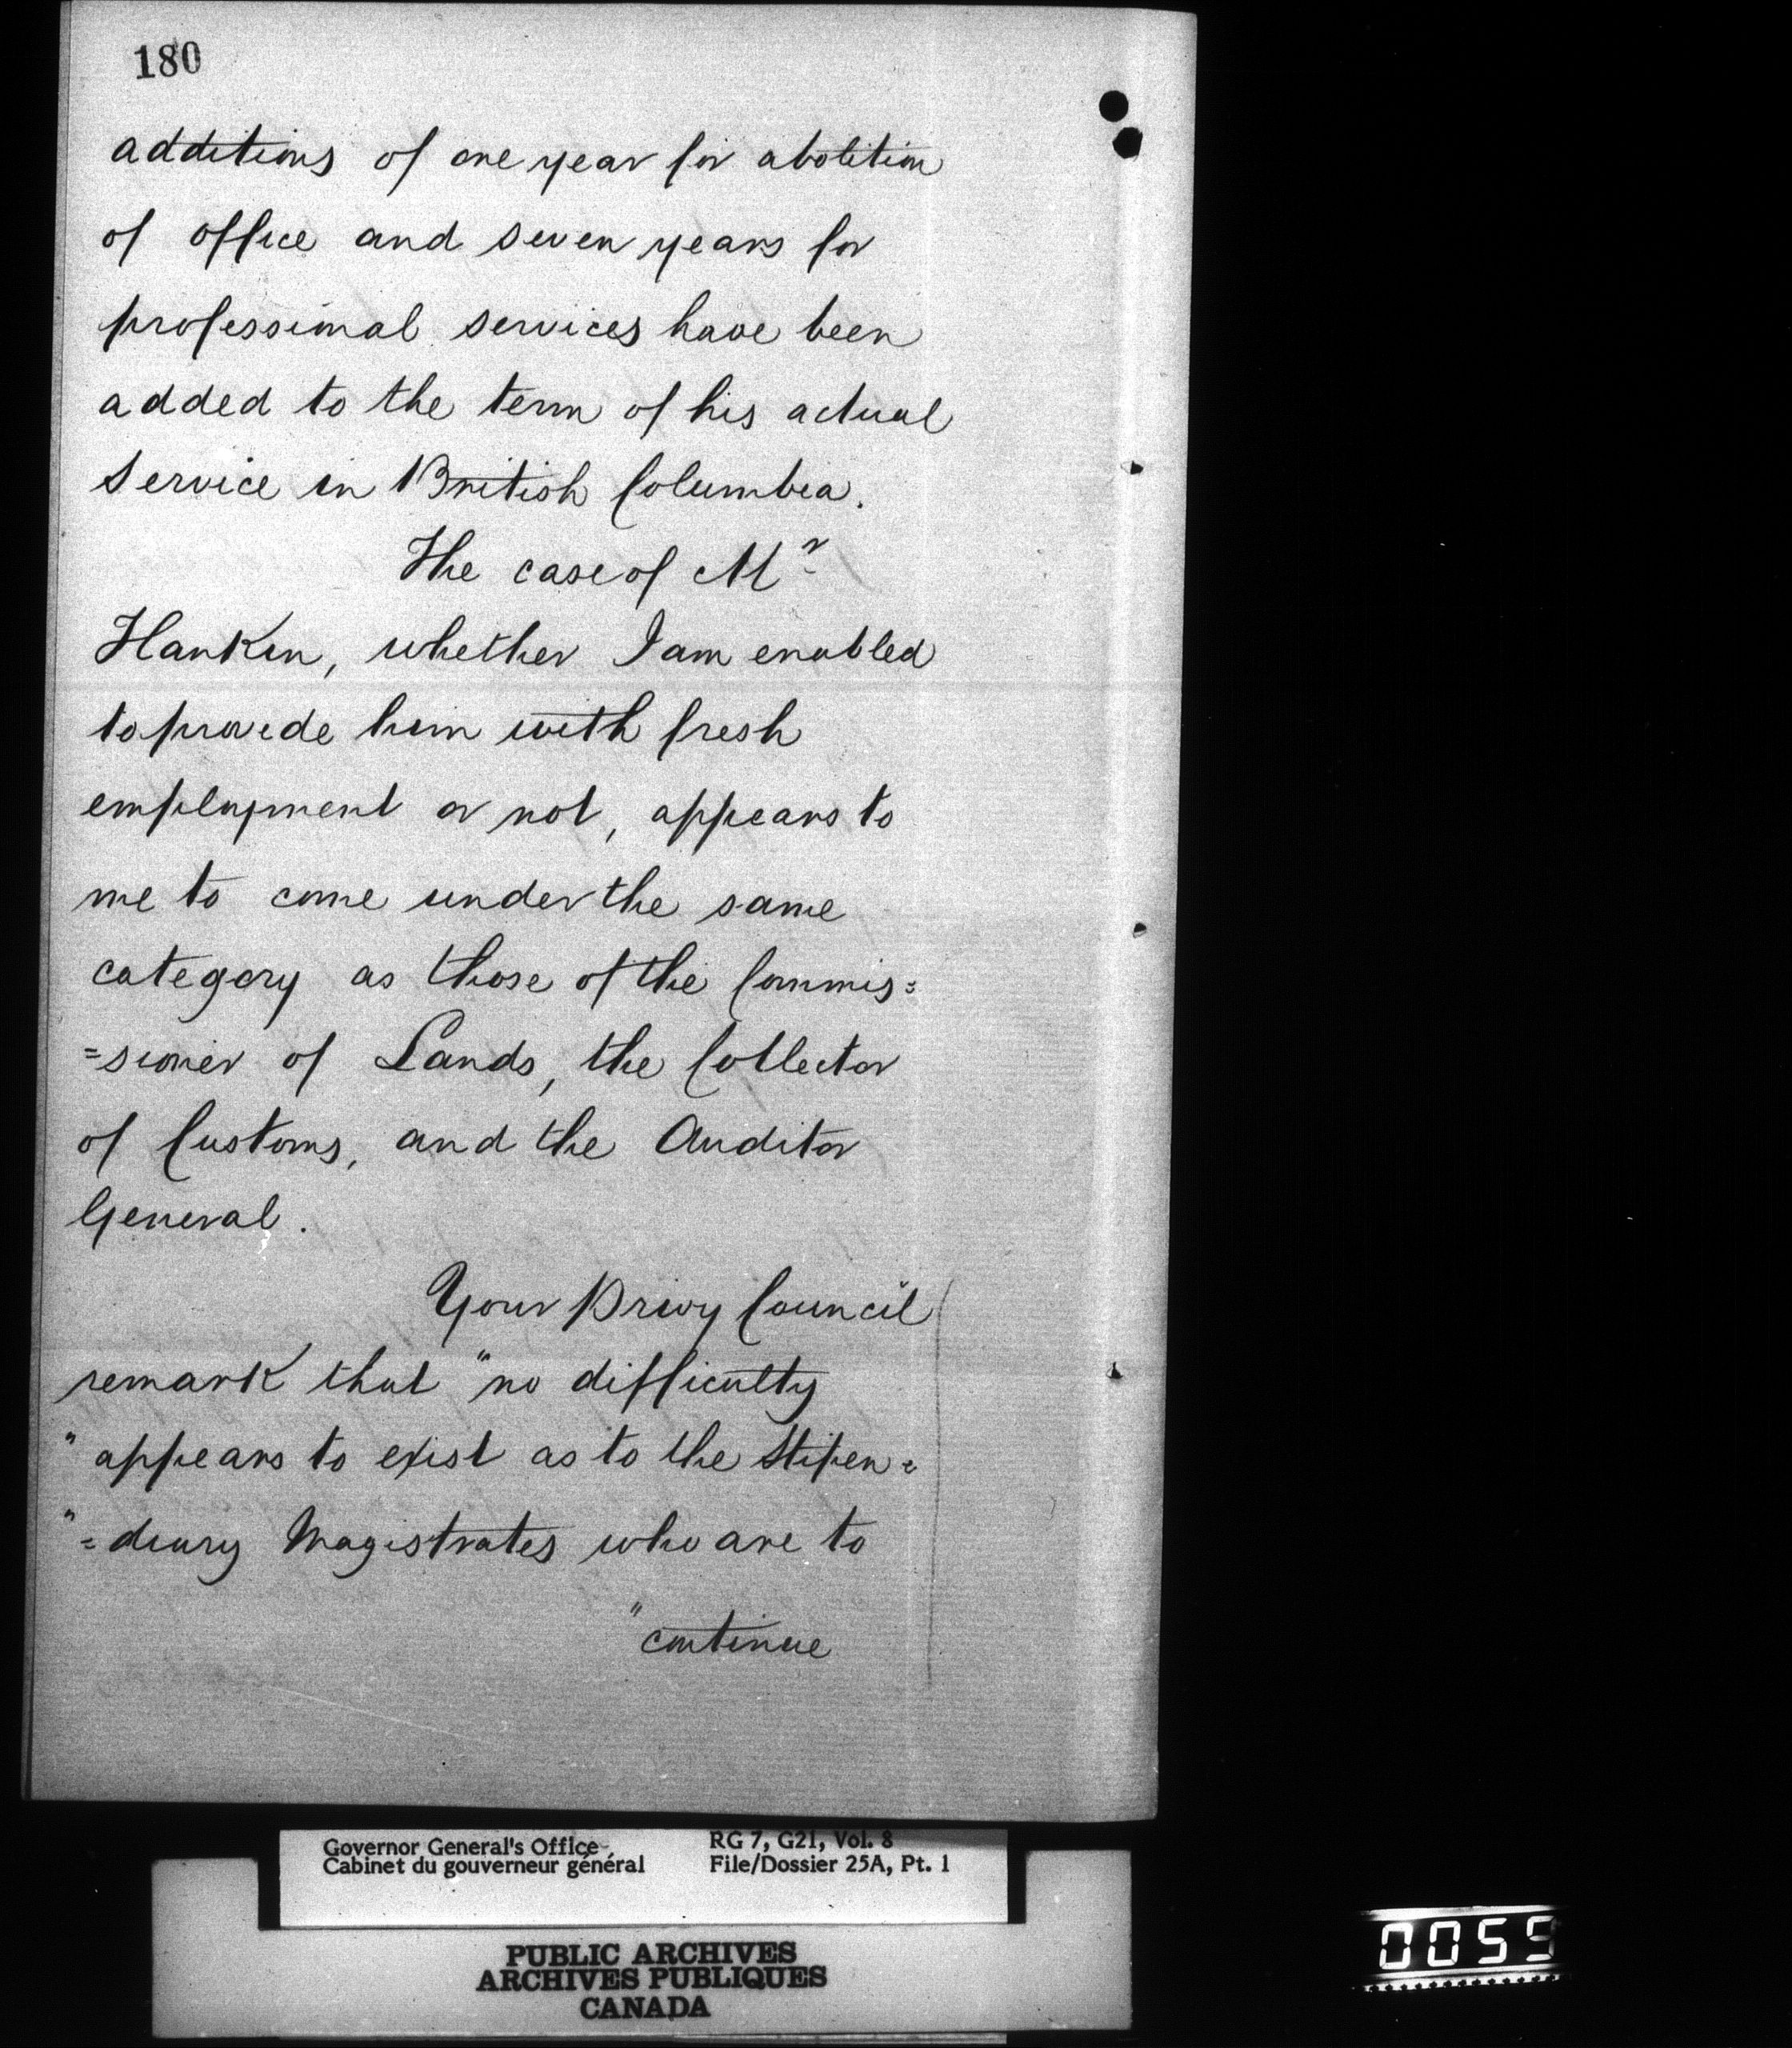 180
additions of one year for abolition
of office and seven years for
professional services have been
added to the term of his actual
Service in British Columbia.
The case of Mr
Hankin, whether I am enabled
to provide him with fresh
employment or not, appears to
me to come under the same
category as those of the Commis=
=sioner of Lands, the Collector
of Customs, and the Auditor
General.
Your Privy Council
remark that "no difficulty
"appears to exist as to the Stipen=
"=diary Magistrates who are to
"continue
Governor General's Office
Cabinet du gouverneur général
RG 7, G21, Vol. 8
File/Dossier 25A, Pt. 1
PUBLIC ARCHIVES
ARCHIVES PUBLIQUES
CANADA
0055